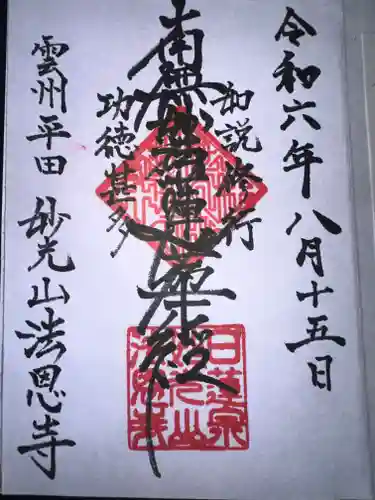 令和六年八月十五日
如説修行
南無妙法蓮華経
功徳甚多
雲州平田 妙光山法恩寺
日蓮宗
妙光山
法恩寺